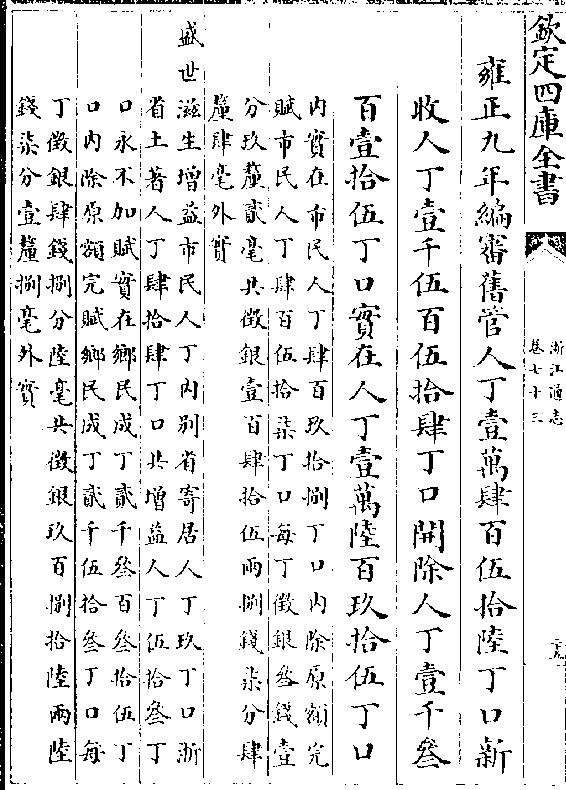 欽定四庫全書
浙江通志
卷七十三
雍正九年編審舊管人丁壹萬肆百伍拾陸丁口新
收人丁壹千伍百伍拾肆丁口開除人丁壹千叁
百壹拾伍丁口實在人丁壹萬陸百玖拾伍丁口
内實在市民人丁肆百玖拾捌丁口内除原額完
賦市民人丁肆百伍拾柒丁口每丁徵銀叁錢壹
分玖釐貳毫共徵銀壹百肆拾伍兩捌錢柒分肆
釐肆毫外實
盛世滋生增益市民人丁内别省寄居人丁玖丁口浙
省土著人丁肆拾肆丁口共增益人丁伍拾叁丁
口永不加賦實在鄉民成丁貳千叁百叁拾伍丁
口内除原額完賦鄉民成丁貳千伍拾叁丁口每
丁徵銀肆錢捌分陸毫共徵銀玖百捌拾陸兩陸
錢柒分壹釐捌毫外實